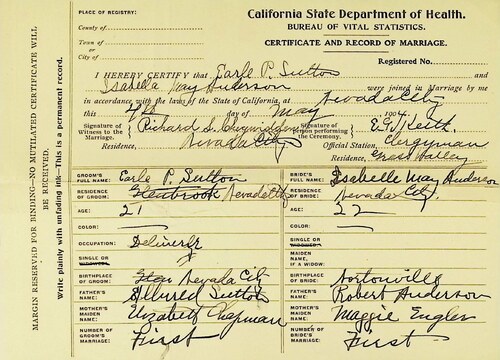 PLACE OF REGISTRY:
County of
Town of
or
City of
California State Department of Health.
BUREAU OF VITAL STATISTICS.
CERTIFICATE AND RECORD OF MARRIAGE.
Registered No.
I HEREBY CERTIFY that Earle P. Sutton and
Isabella May Anderson were joined in Marriage by me
in accordance with the laws of the State of California, at Nevada City
this 4th day of May 1904.
Signature of Witness to the Marriage, Richard S.
Signature of person performing the Ceremony. Keith.
Residence, Nevada City
Official Station, Clergyman
Residence, Grass Valley
GROOM'S FULL NAME: Earle P. Sutton
BRIDE'S FULL NAME: Isabelle May Anderson
RESIDENCE OF GROOM: Glenbrook Nevada City
RESIDENCE OF BRIDE: Nevada City.
AGE: 21
AGE: 22
COLOR: —
COLOR: —
OCCUPATION:
SINGLE OR WIDOWED:
SINGLE OR WIDOWED:
MAIDEN NAME, IF A WIDOW:
BIRTHPLACE OF GROOM: Nevada City
BIRTHPLACE OF BRIDE: Nortonville
FATHER'S NAME: Sutton
FATHER'S NAME: Robert Anderson
MOTHER'S MAIDEN NAME: Elizabeth Chapman
MOTHER'S MAIDEN NAME: Maggie Engler
NUMBER OF GROOM'S MARRIAGE: First
NUMBER OF BRIDE'S MARRIAGE: First
MARGIN RESERVED FOR BINDING—NO MUTILATED CERTIFICATE WILL BE RECEIVED.
Write plainly with unfading ink—This is a permanent record.